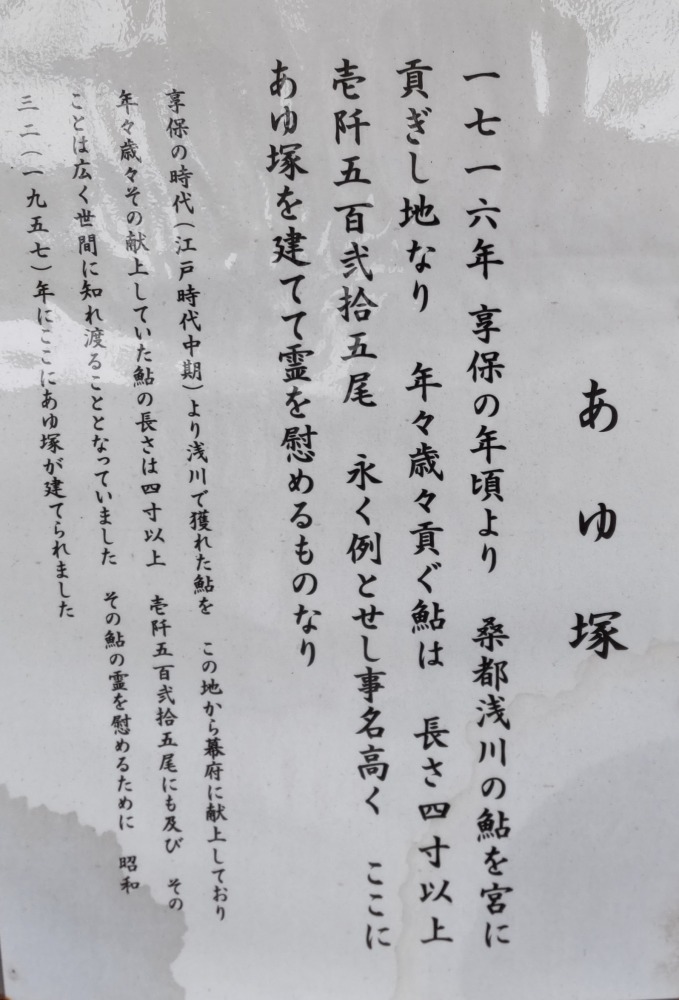 あゆ塚
一七一六年 享保の年頃より 桑都浅川の鮎を宮に
貢ぎし地なり 年々歳々貢ぐ鮎は 長さ四寸以上
壱阡五百弐拾五尾 永く例とせし事名高く ここに
あゆ塚を建てて霊を慰めるものなり
享保の時代(江戸時代中期)より浅川で獲れた鮎を この地から幕府に献上しており
年々歳々その献上していた鮎の長さは四寸以上 壱阡五百弐拾五尾にも及び その
ことは広く世間に知れ渡ることとなっていました その鮎の霊を慰めるために 昭和
三二(一九五七)年にここにあゆ塚が建てられました